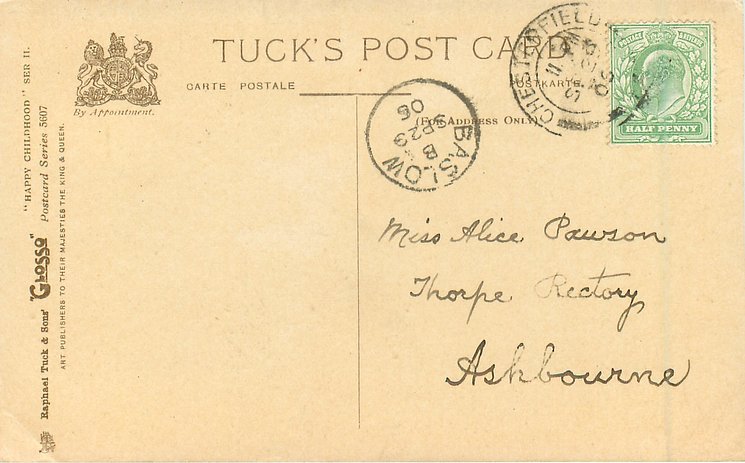 TUCK'S POST CARD
CARTE POSTALE
POSTKARTE
(FOR ADDRESS ONLY)
By Appointment.
"HAPPY CHILDHOOD" SER II.
Raphael Tuck & Sons' "GLOSSO" Postcard Series 5607
ART PUBLISHERS TO THEIR MAJESTIES THE KING & QUEEN.
CHESTERFIELD
BASLOW
B
SP 29
06
POSTAGE REVENUE
HALF PENNY
Miss Alice Pawson
Thorpe Rectory
Ashbourne